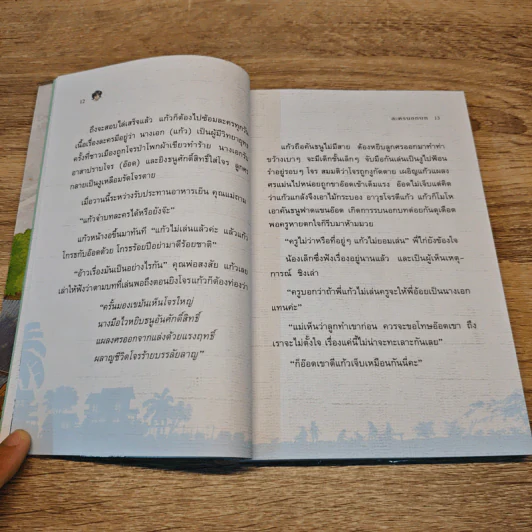 12
ถึงจะสอบได้เสร็จแล้ว แก้วก็ต้องไปซ้อมละครทุกวัน
เนื้อเรื่องละครมีอยู่ว่า นางเอก (แก้ว) เป็นผู้มีวิทยายุทธ
ครั้งที่ชาวเมืองถูกโจรป่าโพกผ้าเขียวทำร้าย นางเอก
อาสาปราบโจร (อ๊อด) และยิงธนูศักดิ์สิทธิ์ใส่โจร ลูกศร
กลายเป็นงูเหลือมรัดโจรตาย
เมื่อวานนี้ระหว่างรับประทานอาหารเย็น คุณแม่ถาม
“แก้วจำบทละครได้หรือยังจ๊ะ”
แก้วหน้างอขึ้นมาทันที “แก้วไม่เล่นแล้วค่ะ แล้วแก้ว
โกรธกับอ๊อดด้วย โกรธร้อยปีอย่ามาดีร้อยชาติ”
“อ้าวเรื่องมันเป็นอย่างไรกัน” คุณพ่อสงสัย แก้วเลย
เล่าให้ฟังว่าตามบทที่เล่นพอถึงตอนยิงโจรแก้วก็ต้องท่องว่า
“ครั้นมองเขม้นเห็นโจรใหญ่
นางมือไวหยิบธนูอันศักดิ์สิทธิ์
แผลงศรออกจากแล่งด้วยแรงฤทธิ์
ผลาญชีวิตโจรร้ายบรรลัยลาญ”
13
แก้วถือคันธนูไม่มีสาย ต้องหยิบลูกศรออกมาทำท่า
ขว้างเบาๆ จะมีเด็กชั้นเล็กๆ จับมือกันเล่นเป็นงูไปฟ้อน
รำอยู่รอบๆ โจร สมมติว่าโจรถูกงูกัดตาย เผอิญแก้วแผลง
ศรแม่นไปหน่อยถูกขาอ๊อดเข้าเต็มแรง อ๊อดไม่เจ็บแต่คิด
ว่าแก้วแกล้งจึงเอาไม้กระบอง อาวุธโจรตีแก้ว แก้วก็โมโห
เอาคันธนูฟาดแขนอ๊อด เกิดการรบนอกบทต่อยกันดุเดือด
พอครูหายตกใจก็รีบมาห้ามมวย
“ครูไม่ว่าหรือที่อยู่ๆ แก้วไม่ยอมเล่น” พี่ไก่ยังข้องใจ
น้องเล็กซึ่งฟังเรื่องอยู่นานแล้ว และเป็นผู้เห็นเหตุ-
การณ์ ชิงเล่า
“ครูบอกว่าถ้าพี่แก้วไม่เล่นครูจะให้พี่อ้อยเป็นนางเอก
แทนค่ะ”
“แม่เห็นว่าลูกทำเขาก่อน ควรจะขอโทษอ๊อดเขา ถึง
เราจะไม่ตั้งใจ เรื่องแค่นี้ไม่น่าจะทะเลาะกันเลย”
“ก็อ๊อดเขาตีแก้วเจ็บเหมือนกันนี่คะ”